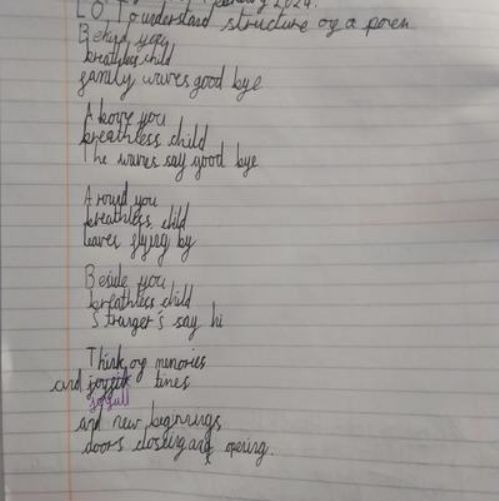 February 2024.
LO, To understand structure og a poem
Behind you
breathless child
family waves good bye
Above you
breathless child
The waves say good bye
Around you
breathless child
leaves flying by
Beside you
breathless child
Stranger's say hi
Think og memories
and times
joyfull
and new beginnings
doors closing and opening.